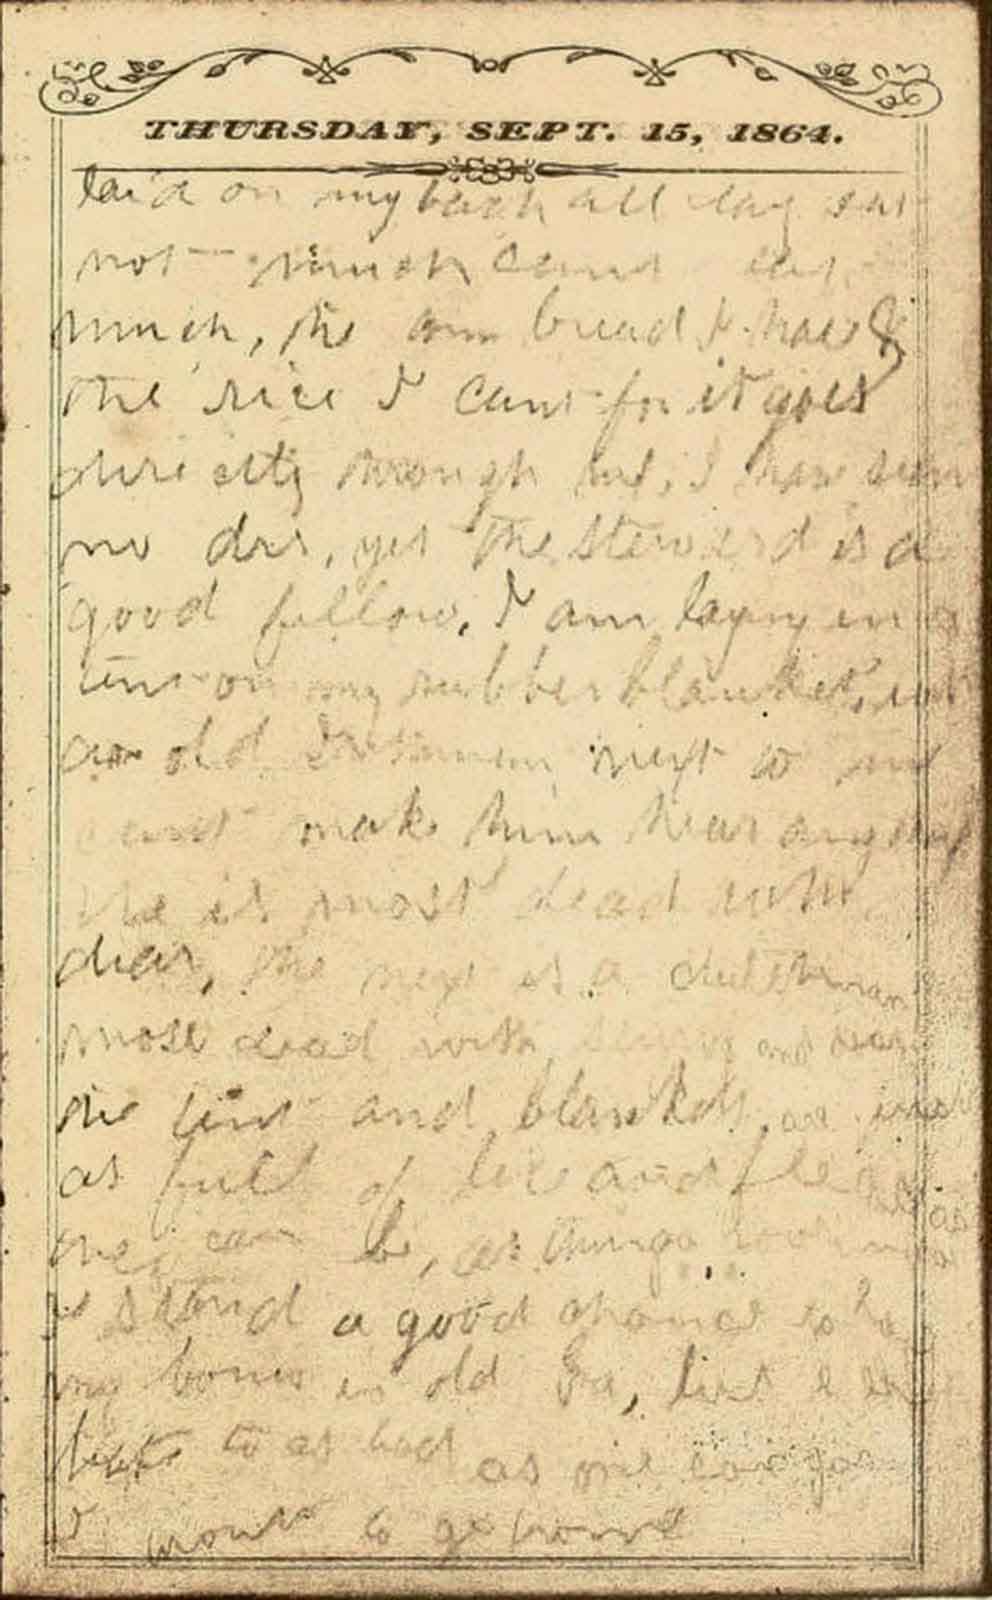 THURSDAY, SEPT. 15, 1864.
laid on my back all day eat
not much cant eat
much, the corn bread I hate &
the rice I cant for it goes
directly through me, I have seen
no dr, yet the Steward is a
good fellow, I am laying in a
tent on my rubber blanket, with
an old next to me
cant make him hear anything
he is most dead with
diar, the next is a dutchman
most dead with and diar
the tent and blankets are just
as full of lice and fleas as
they can be, as things look now
I stand a good chance to lay
my bones in old Ga, but I
to as bad as one can for
I want to go home